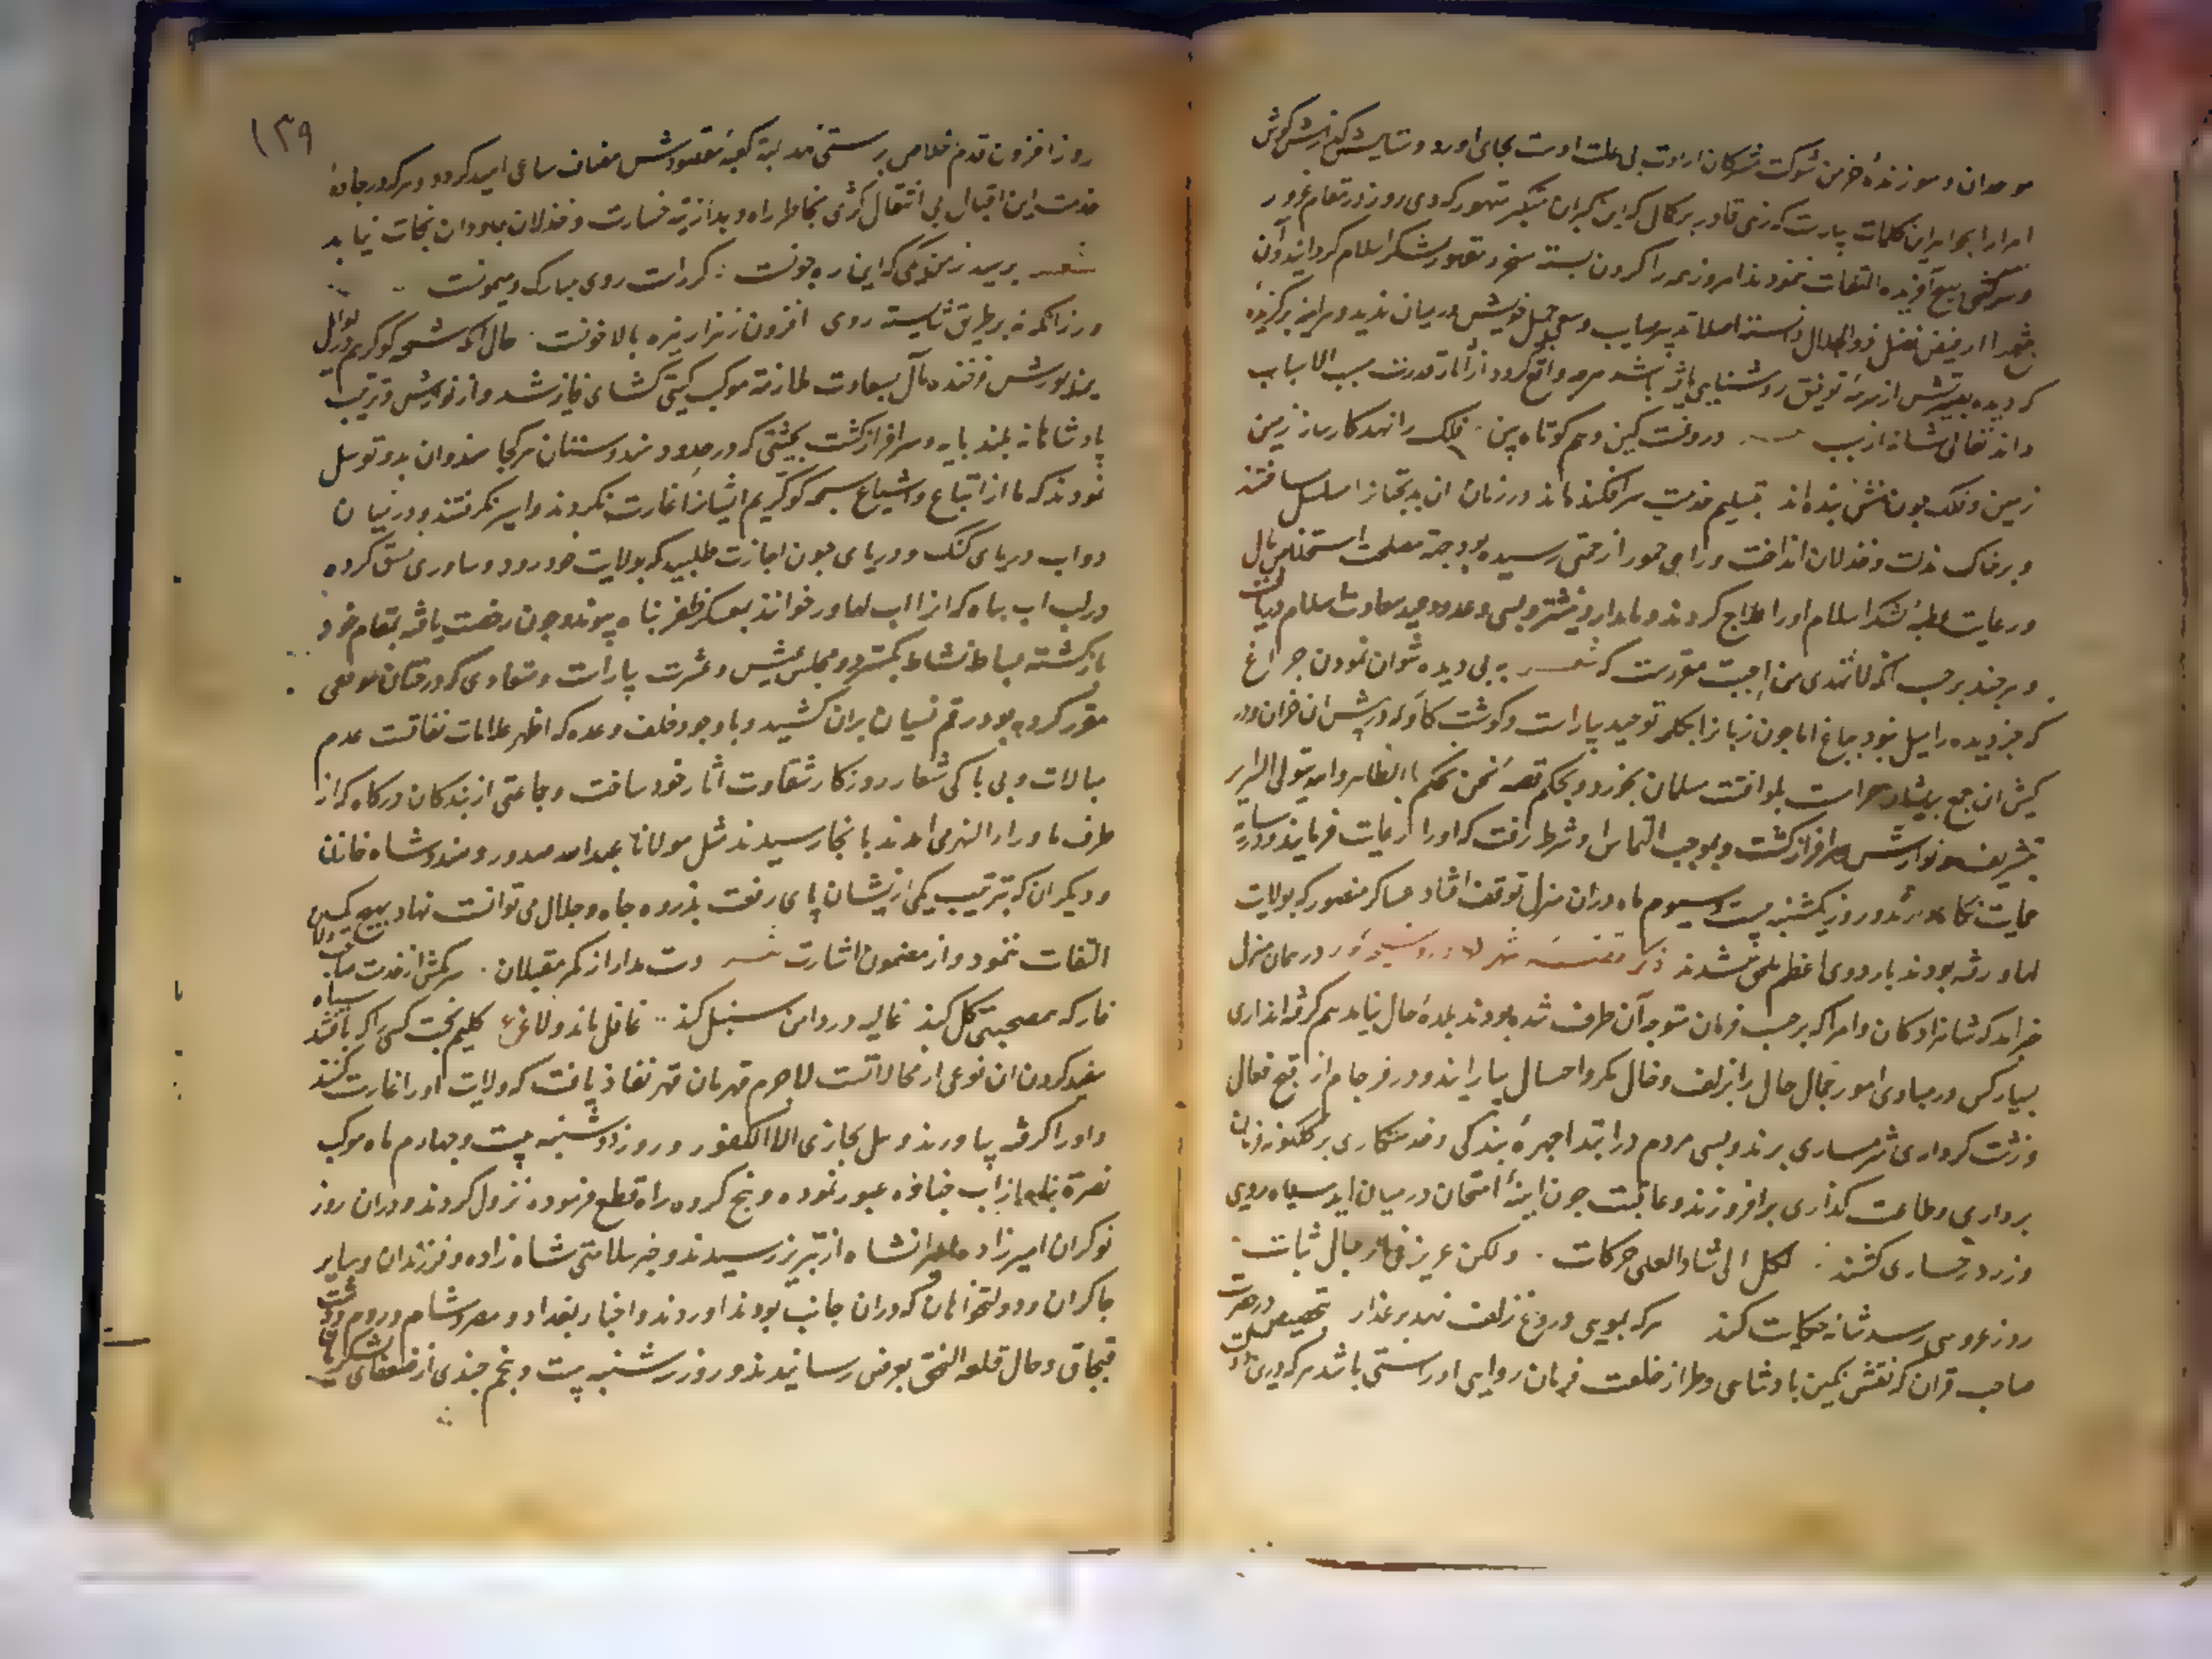 موحدان و سوزندهٔ خرمن شوکت مشرکان ارادت بی علت اوست بجای اورد و ستایش
امرا را بجواهر این کلمات بیاراست که زهی قادر بر کمال که این کبران متکبر متهور که دی روز در مقام غرور
و سرکشی بهیچ آفریده التفات ننمودند امروز همه را کردن بسته مسخر و مقهور لشکر اسلام کردانید و ان
فیض فضل ذو الجلال دانسته اصلا تدبیر صایب و سعی جمیل خویش در میان ندید و هر اینه برکزیدهٔ
که دیده بصیرتش از سرمهٔ توفیق روشنایی یافته باشد هرچه واقع کردد از اثار قدرت مسبب الاسباب
داند تعالی شانه از سبب درونت کین وهم کوتاه بین فلک را نهد کارساز زمین
زمین و فلک چون منش بنده اند بتسلیم خدمت سرافکنده اند در زمان ان بدبختان را سلسل ساختند
و بر خاک مذلت و خذلان انداخت و راجی جمو را زخمی رسیده بود جهة مصلحت استخلاص مال
و رعایت خطبهٔ لشکر اسلام او را علاج کردند و بمدارا و بیشتر و بسی وعده و وعید سعادت اسلام دریافت
و هر چند بر حسب انک لا تهدی من احببت مقررست که شعر به بی دیده نتوان نمودن چراغ
که جز دیده را میل نبود بباغ اما چون زبان را بکلمه توحید بیاراست و کوشت کاو که در کیش ان خران و در
کیش ان جمع پریشان حرامست بموافقت مسلمان بخورد و بحکم قصهٔ نحن نحکم بالظاهر والله یتولی السرایر
بتشریف و نوازش سرافراز کشت و بموجب التماس او شرط رفت که او را رعایت فرمایند و در سایهٔ
حمایت نکاه دارند و روز یکشنبه بیست و سیوم ماه در ان منزل توقف افتاد عساکر منصور که بولایت
لهاور رفته بودند باردوی اعظم ملحق شدند ذکر قضیه شهر لهاور و شیخه کوکر در همان منزل
خبر امد که شاهزادکان و امرا که بر حسب فرمان متوجه آن طرف شده بودند بلدهٔ حال نیاید هم کرفته اند آری
بسیار کس در مبادی امور جمال حال را بزلف و خال مکر و احتیال بیارایند و در فرجام از قبح فعال
و زشت کرداری شرمساری برند و بسی مردم در ابتدا چهرهٔ بندکی و خدمتکاری بر کلکونه فرمان
برداری و طاعت کذاری برافروزند و عاقبت چون اینهٔ امتحان در میان اید سیاه رویی
و زرد رخساری کشند لکل الی شاو العلی حرکات ولکن عزیز فی الرجال ثبات
روز عروسی رسد شانه حکایت کند هر که بمویی دروغ زلف نهد بر عذار تخصیص در حضرت
صاحب قران که نقش نکین پادشاهی و طراز خلعت فرمان روایی او راستی باشد هر که درین
۱۳۹
روز افزون قدم خلاص بر راستی نهد لبته کعبهٔ مقصودش مضاف ساعی امید کردد و هر که در جادهٔ
خدمت این اقبال بی انتقال کژی بخاطر راه دهد از تیه خسارت و خذلان جاودان نجات نیابد
شعر بپرسد ز من ادمی که این ره چونست کر راست روی مبارک و میمونست
ور زانکه نه بر طریق شایسته روی افزون ز هزار نیزه بالا خونست حال آنکه شیخه کوکر هم در اوایل
یمن یورش فرخنده مآل بسعادت ملازمة موکب کیتی کشای فایز شد و از نوازش و تربیت
پادشاهانه بلند پایه و سرافراز کشت بحیثیتی که در حدود هندوستان هر کجا هندوان بدو توسل
نمودند که ما از اتباع و اشیاع شیخه کوکریم ایشانرا غارت نکردند و اسیر نکرفتند و در میان
دو اب دریای کنک و دریای جون اجازت طلبید که بولایت خود رود و ساوری نسق کرده
در لب اب بیاه که انرا اب لهاور خوانند بمعسکر ظفر پناه پیوندد و چون رخصت یافته بمقام خود
باز کشته بساط نشاط بکسترد و مجلس عیش و عشرت بیاراست و میعادی که در حین توقف
مقرر کرده بود رقم نسیان بران کشید و با وجود خلف وعده که اظهر علامات نفاقست عدم
مبالات و بی باکی شعار روزکار شقاوت اثار خود ساخت و جماعتی از بندکان درکاه که از
طرف ماوراء النهر می امدند بانجا رسیدند مثل مولانا عبدالله صدور و هندوشاه خازن
و دیکران که بتربیت یکی از یشان پای رفعت بذروه جاه و جلال می توانست نهاد بهیچ کس
التفات ننمود و از مضمون اشارت شعر دست مدار از کمر مقبلان سرمکش از خدمت صاحب دلان
خار که همصحبتی کل کند غالیه در دامن سنبل کند غافل ماند ولا غرو کلیم بخت کسی را که بافتند سیاه
سفید کردن ان نوعی از محالاتست لاجرم قهرمان قهر نفاذ یافت که ولایت او را غارت کنند
و او را کرفته بیاورند و هل یجازی الا الکفور و روز دوشنبه بیست و چهارم ماه موکب
نصرة پناه از اب جناوه عبور نموده و پنج کروه راه قطع فرموده نزول کردند و دران روز
نوکران امیرزاده میرانشاه از تبریز رسیدند و خبر سلامتی شاه زاده و فرزندان و سایر
چاکران و دولتخواهان که دران جانب بودند اوردند و اخبار بغداد و مصر و شام و روم و دشت
قبچاق و حال قلعه النجق بعرض رسانیدند و روز سه شنبه بیست و پنجم چندی از ضعفای لشکر